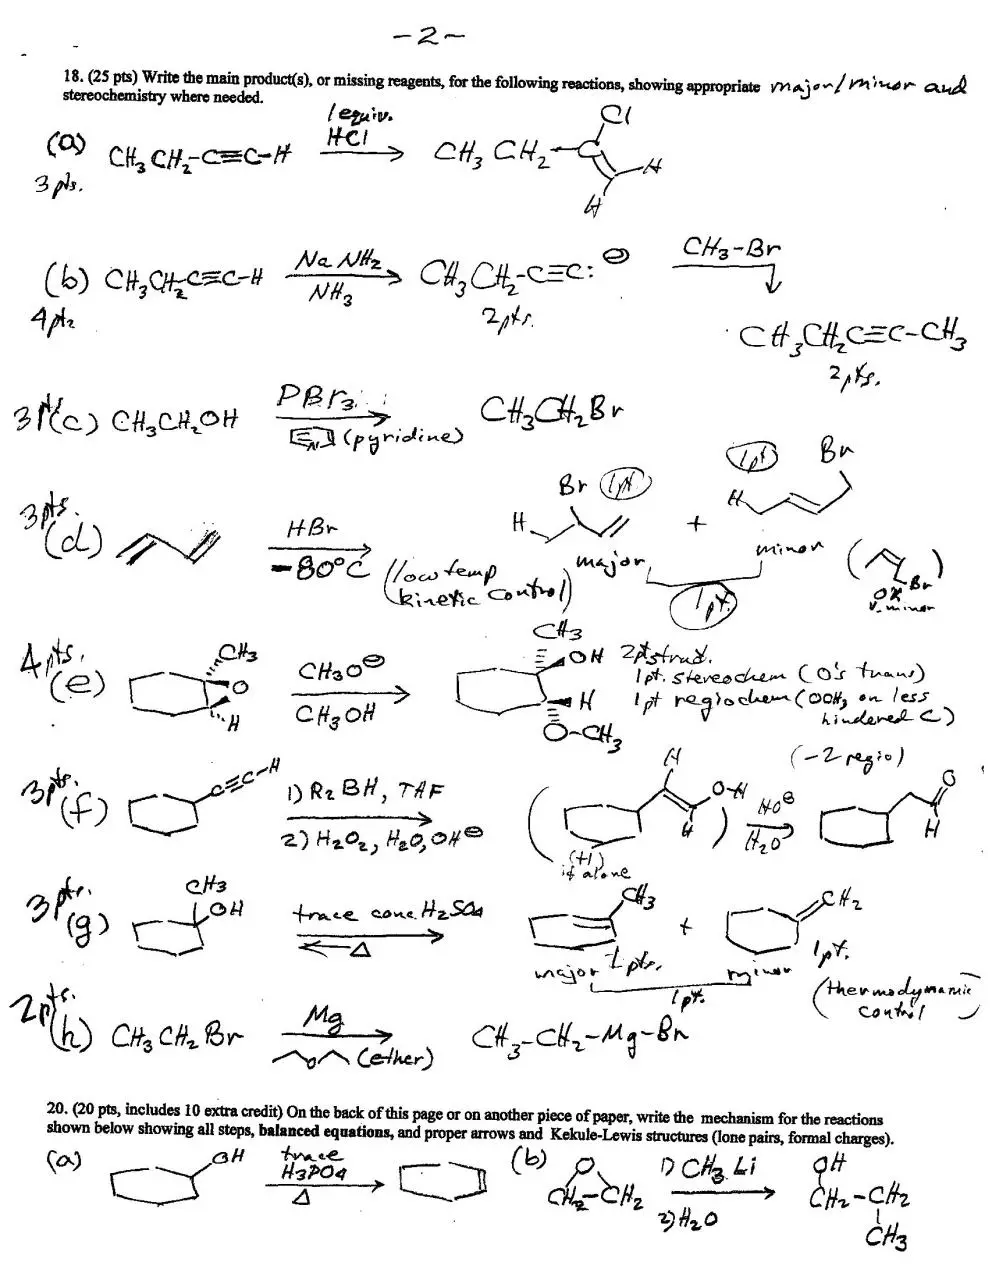 -2-
18. (25 pts) Write the main product(s), or missing reagents, for the following reactions, showing appropriate major/minor and
stereochemistry where needed.
(a) CH3CH2-C≡C-H 1 equiv. HCl CH3CH2-C Cl H H
3 pts.
(b) CH3CH2C≡C-H NaNH2 NH3 CH3CH2-C≡C:⊖ CH3-Br
4 pts 2 pts.
CH3CH2C≡C-CH3
2 pts.
3 pts (c) CH3CH2OH PBr3 N (pyridine) CH3CH2Br
3 pts. (d) HBr -80°C (low temp kinetic control) H Br 1pt major + H Br 1pt minor 1pt. ( Br or v. minor )
4 pts. (e) CH3 O H CH3O⊖ CH3OH CH3 OH H O-CH3 2pt struct.
1 pt. stereochem (O's trans)
1 pt regiochem (OCH3 on less
hindered C)
(-2 regio)
3 pts. (f) C≡C-H 1) R2BH, THF
2) H2O2, H2O, OH⊖ ( H O-H H ) HO⊖ H2O O H
(+1)
if alone
3 pts. (g) CH3 OH trace conc. H2SO4 Δ CH3 major 2 pts. + CH2 minor 1 pt.
1 pt. (thermodynamic
control)
2 pts. (h) CH3CH2Br Mg O (ether) CH3-CH2-Mg-Br
20. (20 pts, includes 10 extra credit) On the back of this page or on another piece of paper, write the mechanism for the reactions
shown below showing all steps, balanced equations, and proper arrows and Kekule-Lewis structures (lone pairs, formal charges).
(a) OH trace H3PO4 Δ (b) O CH2-CH2 1) CH3Li 2) H2O OH CH2-CH2 CH3